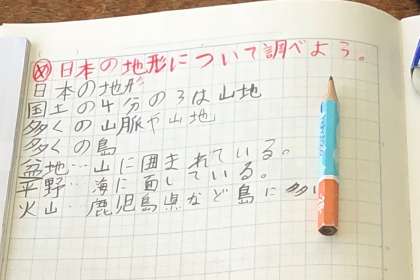 め 日本の地形について調べよう。
日本の地形
国土の4分の3は山地
多くの山脈や山地
多くの島
盆地…山に囲まれている。
平野…海に面している。
火山…鹿児島県など島に多い